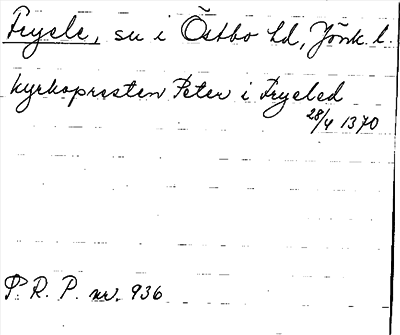 Fryele, su i Östbo hd, Jönk. l.
kyrkopresten Peter i Fryeled
28/4 1370
P. R. P. nr. 936